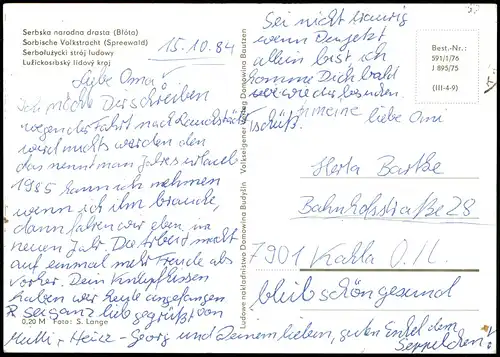 Serbska narodna drasta (Błóta)
Sorbische Volkstracht (Spreewald)
Serbołużycki strój ludowy
Lužickosrbský lidový kroj
15.10.84
Liebe Oma!
Ich möchte Dir schreiben
wegen der Fahrt nach
wird nichts werden den
das nennt man Jahresurlaub
1985 kann ich nehmen
wenn ich ihn brauche,
dann fahren wir eben im
neuen Jahr. Die Arbeit macht
auf einmal mehr Freude als
vorher. Dein Knüpfkissen
haben wir heute angefangen
Sei ganz lieb gegrüßt von
Mutti + Heinz-Georg und Deinem lieben, guten Enkel dem
Seppelchen!
0,20 M Foto: S. Lange
Ludowe nakładnistwo Domowina Budyšin Volkseigener Verlag Domowina Bautzen
Sei nicht traurig
wenn Du jetzt
allein bist ich
komme Dich bald
wieder besuchen.
Tschüß. meine
liebe Omi
Best.-Nr.:
591/1/76
J 895/75
(III-4-9)
Herta Bartke
Bahnhofstraße 28
7901 Kahla
bleib schön gesund